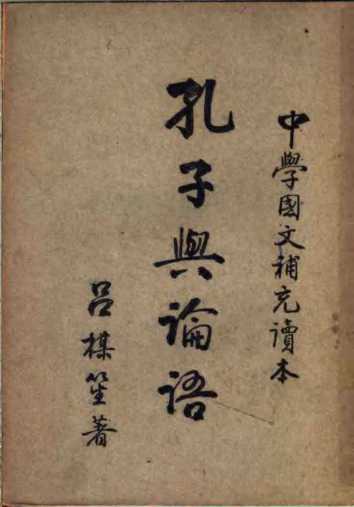 中學國文補充讀本
孔子與論語
呂楳笙著